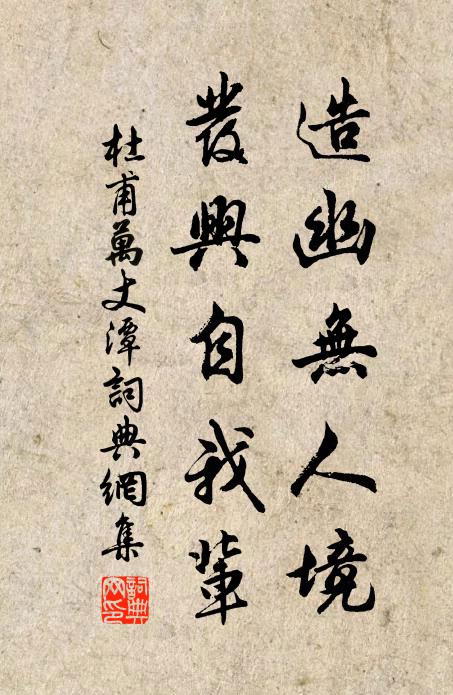 造幽無人境
發興自我輩
杜甫萬丈潭詞典網集
詞典
网印